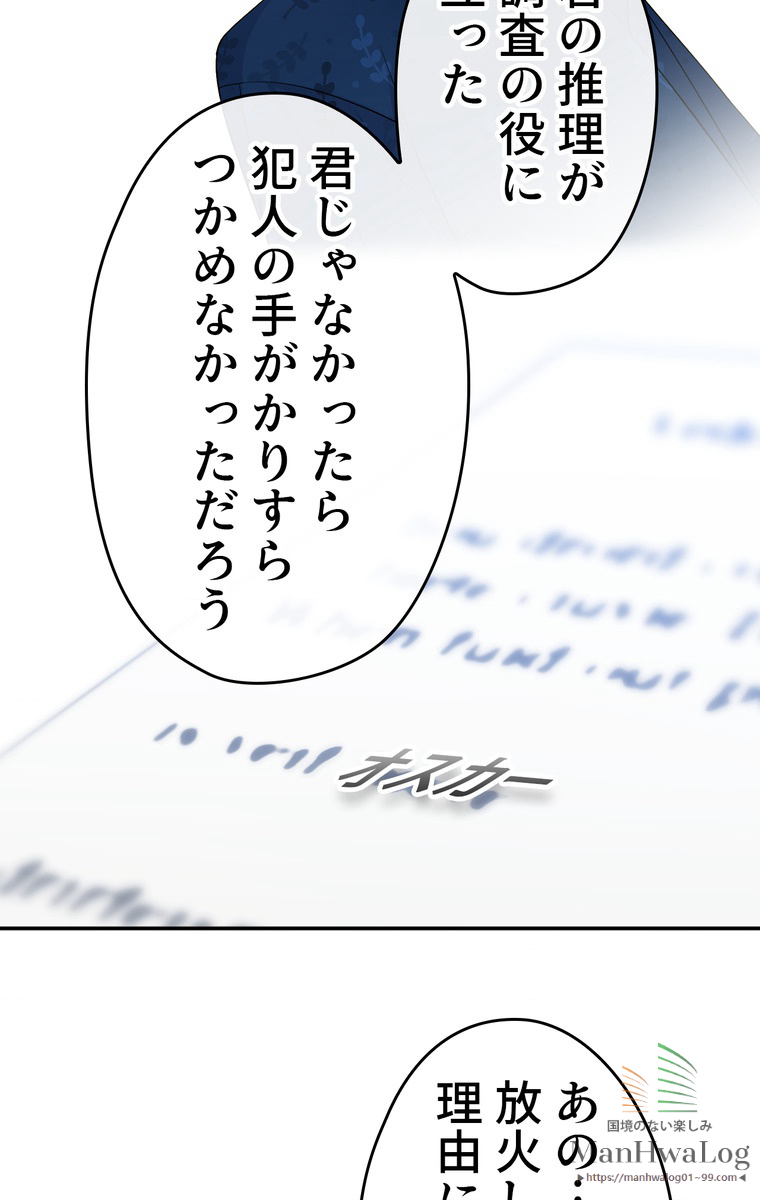 君の推理が
調査の役に
立った
君じゃなかったら
犯人の手がかりすら
つかめなかっただろう
オスカー
あの…
放火し
理由に
国境のない楽しみ
ManHwaLog
▶https://manhwalog01~99.com◀